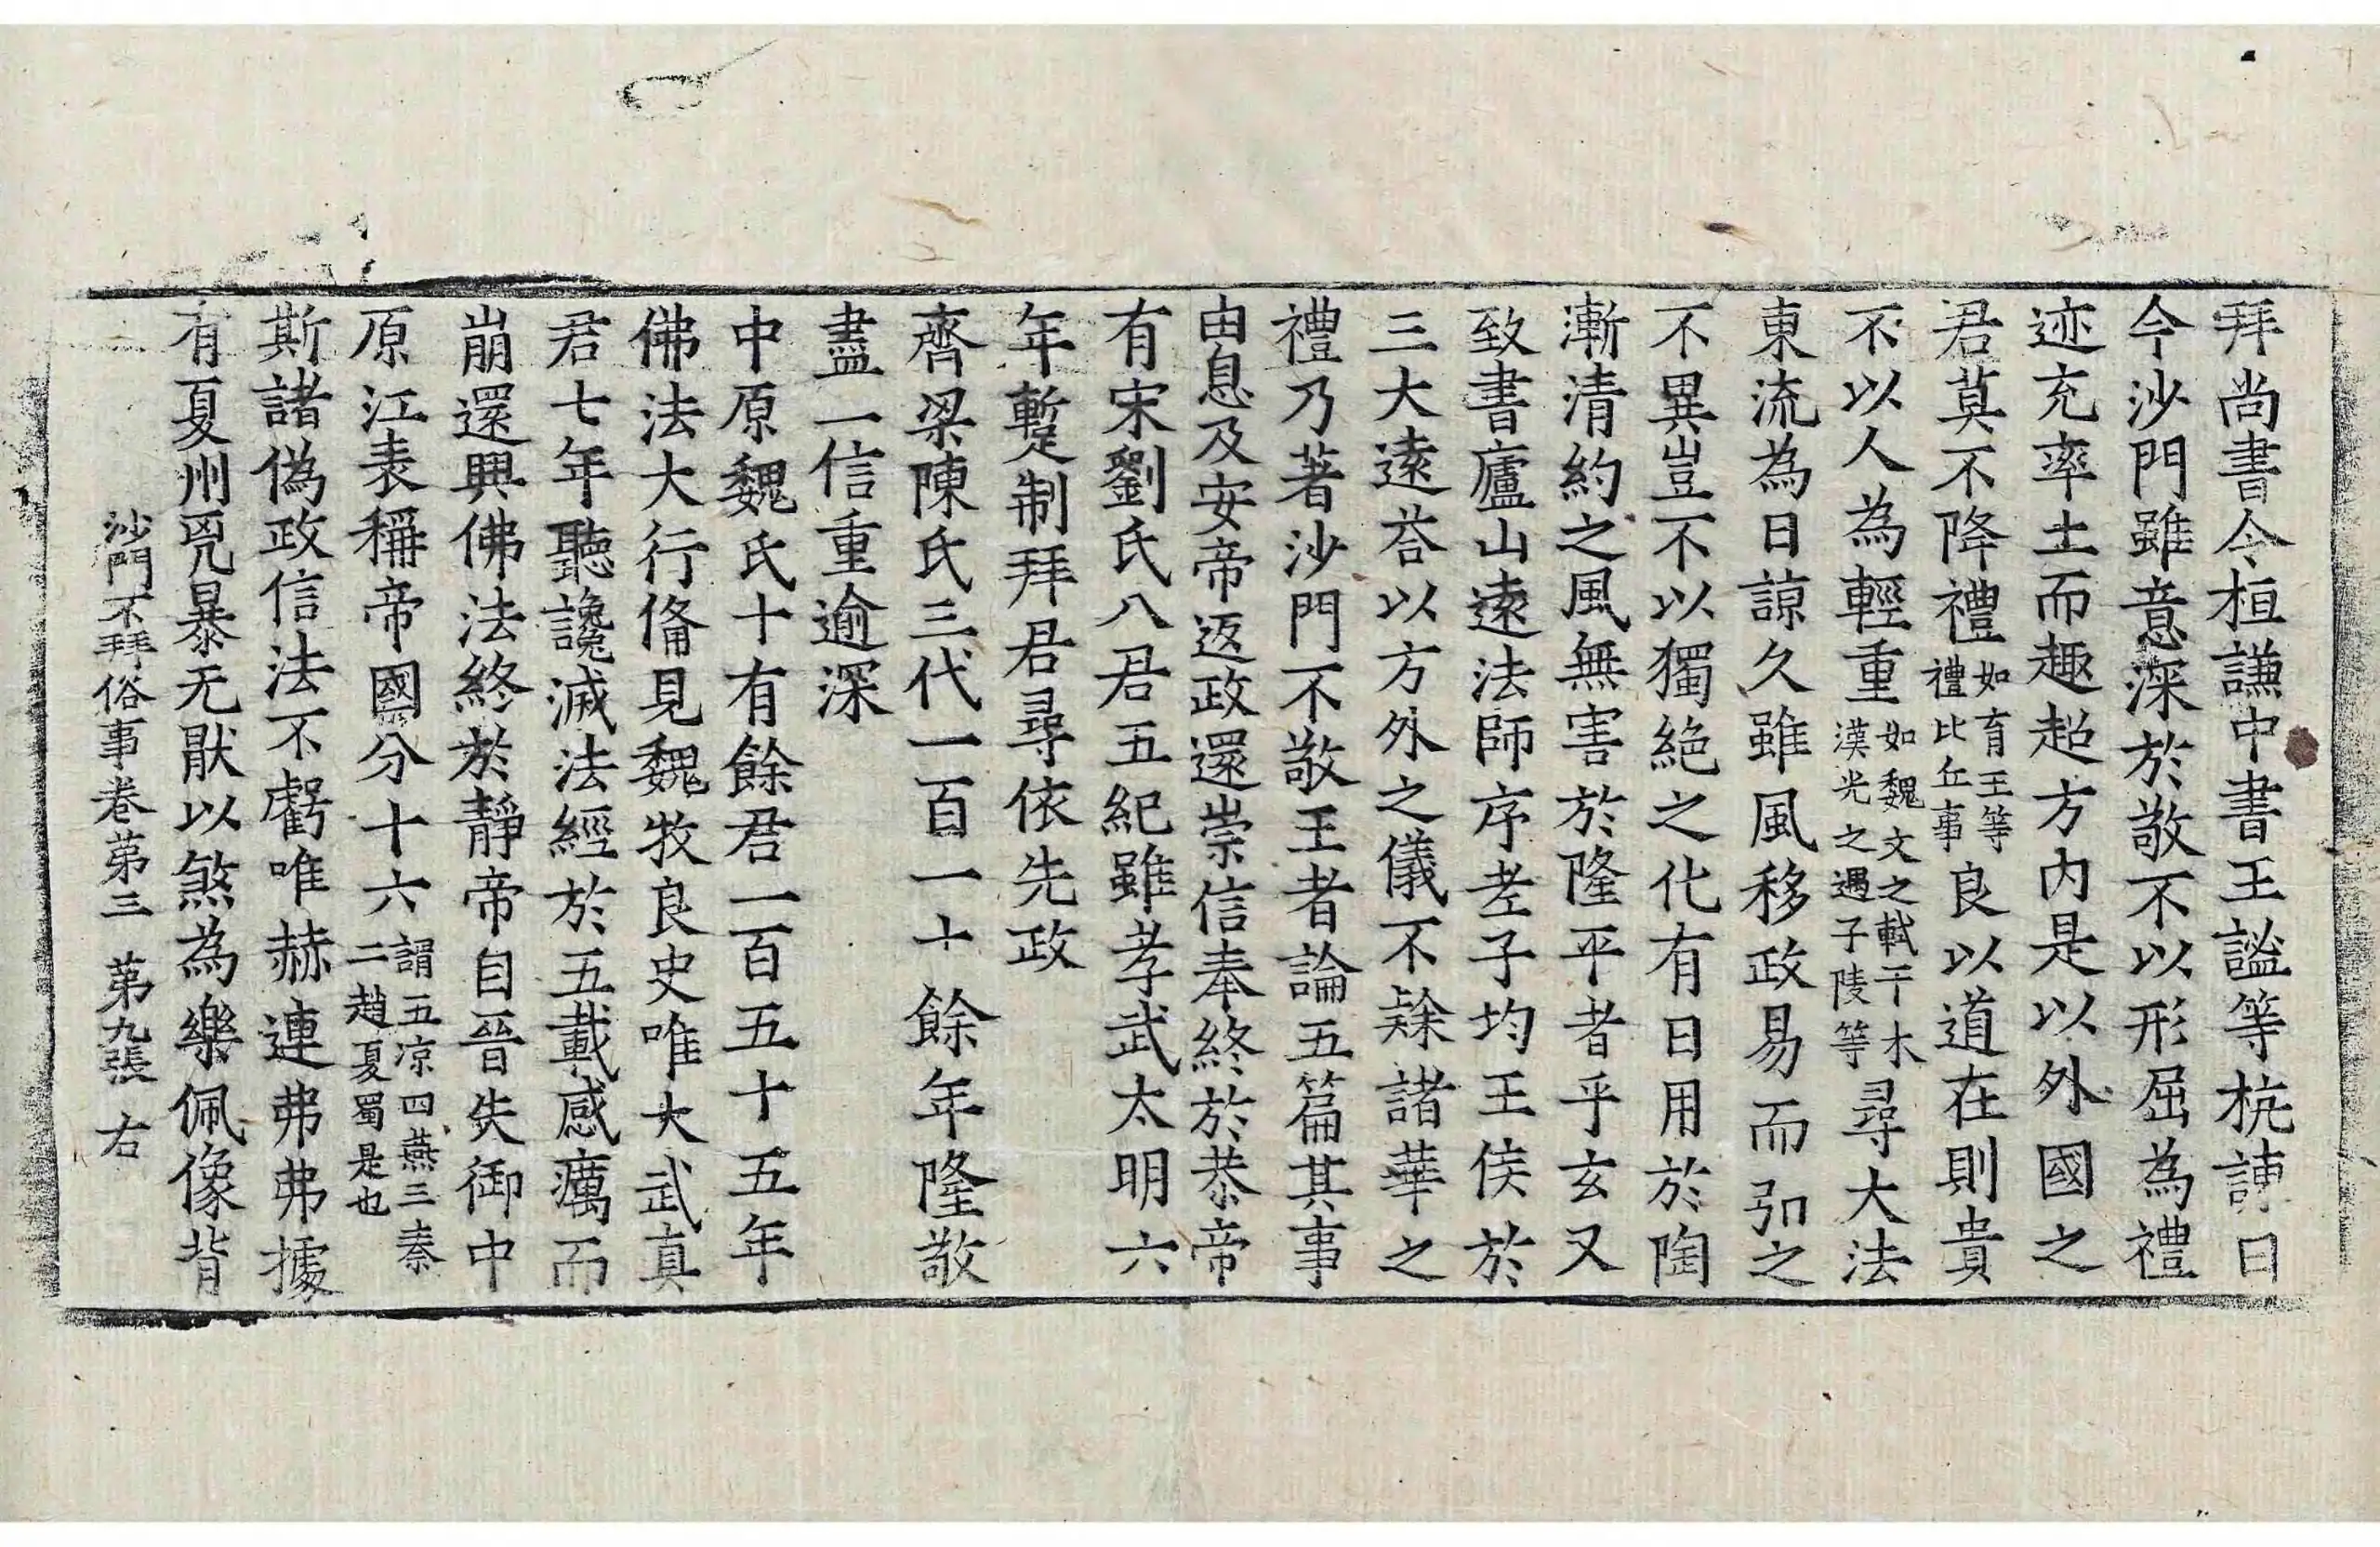 拜尚書令桓謙中書王謐等抗諌曰
今沙門雖意深於敬不以形屈為禮
迹充率土而趣超方內是以外國之
君莫不降禮如育王等禮比丘事良以道在則貴
不以人為輕重如魏文之軾干木漢光之遇子陵等尋大法
東流為日諒久雖風移政易而弘之
不異豈不以獨絕之化有日用於陶
漸清約之風無害於隆平者乎玄又
致書廬山遠法師序老子均王侯於
三大遠荅以方外之儀不隸諸華之
禮乃著沙門不敬王者論五篇其事
由息及安帝返政還崇信奉終於恭帝
有宋劉氏八君五紀雖孝武太明六
年蹔制拜君尋依先政
齊梁陳氏三代一百一十餘年隆敬
盡一信重逾深
中原魏氏十有餘君一百五十五年
佛法大行俻見魏牧良史唯大武真
君七年聽讒滅法經於五載感癘而
崩還興佛法終於靜帝自晉失御中
原江表稱帝國分十六謂五凉四燕三秦二趙夏蜀是也
斯諸偽政信法不虧唯赫連弗弗據
有夏州兇暴无猒以煞為樂佩像背
沙門不拜俗事卷苐三 苐九張 右